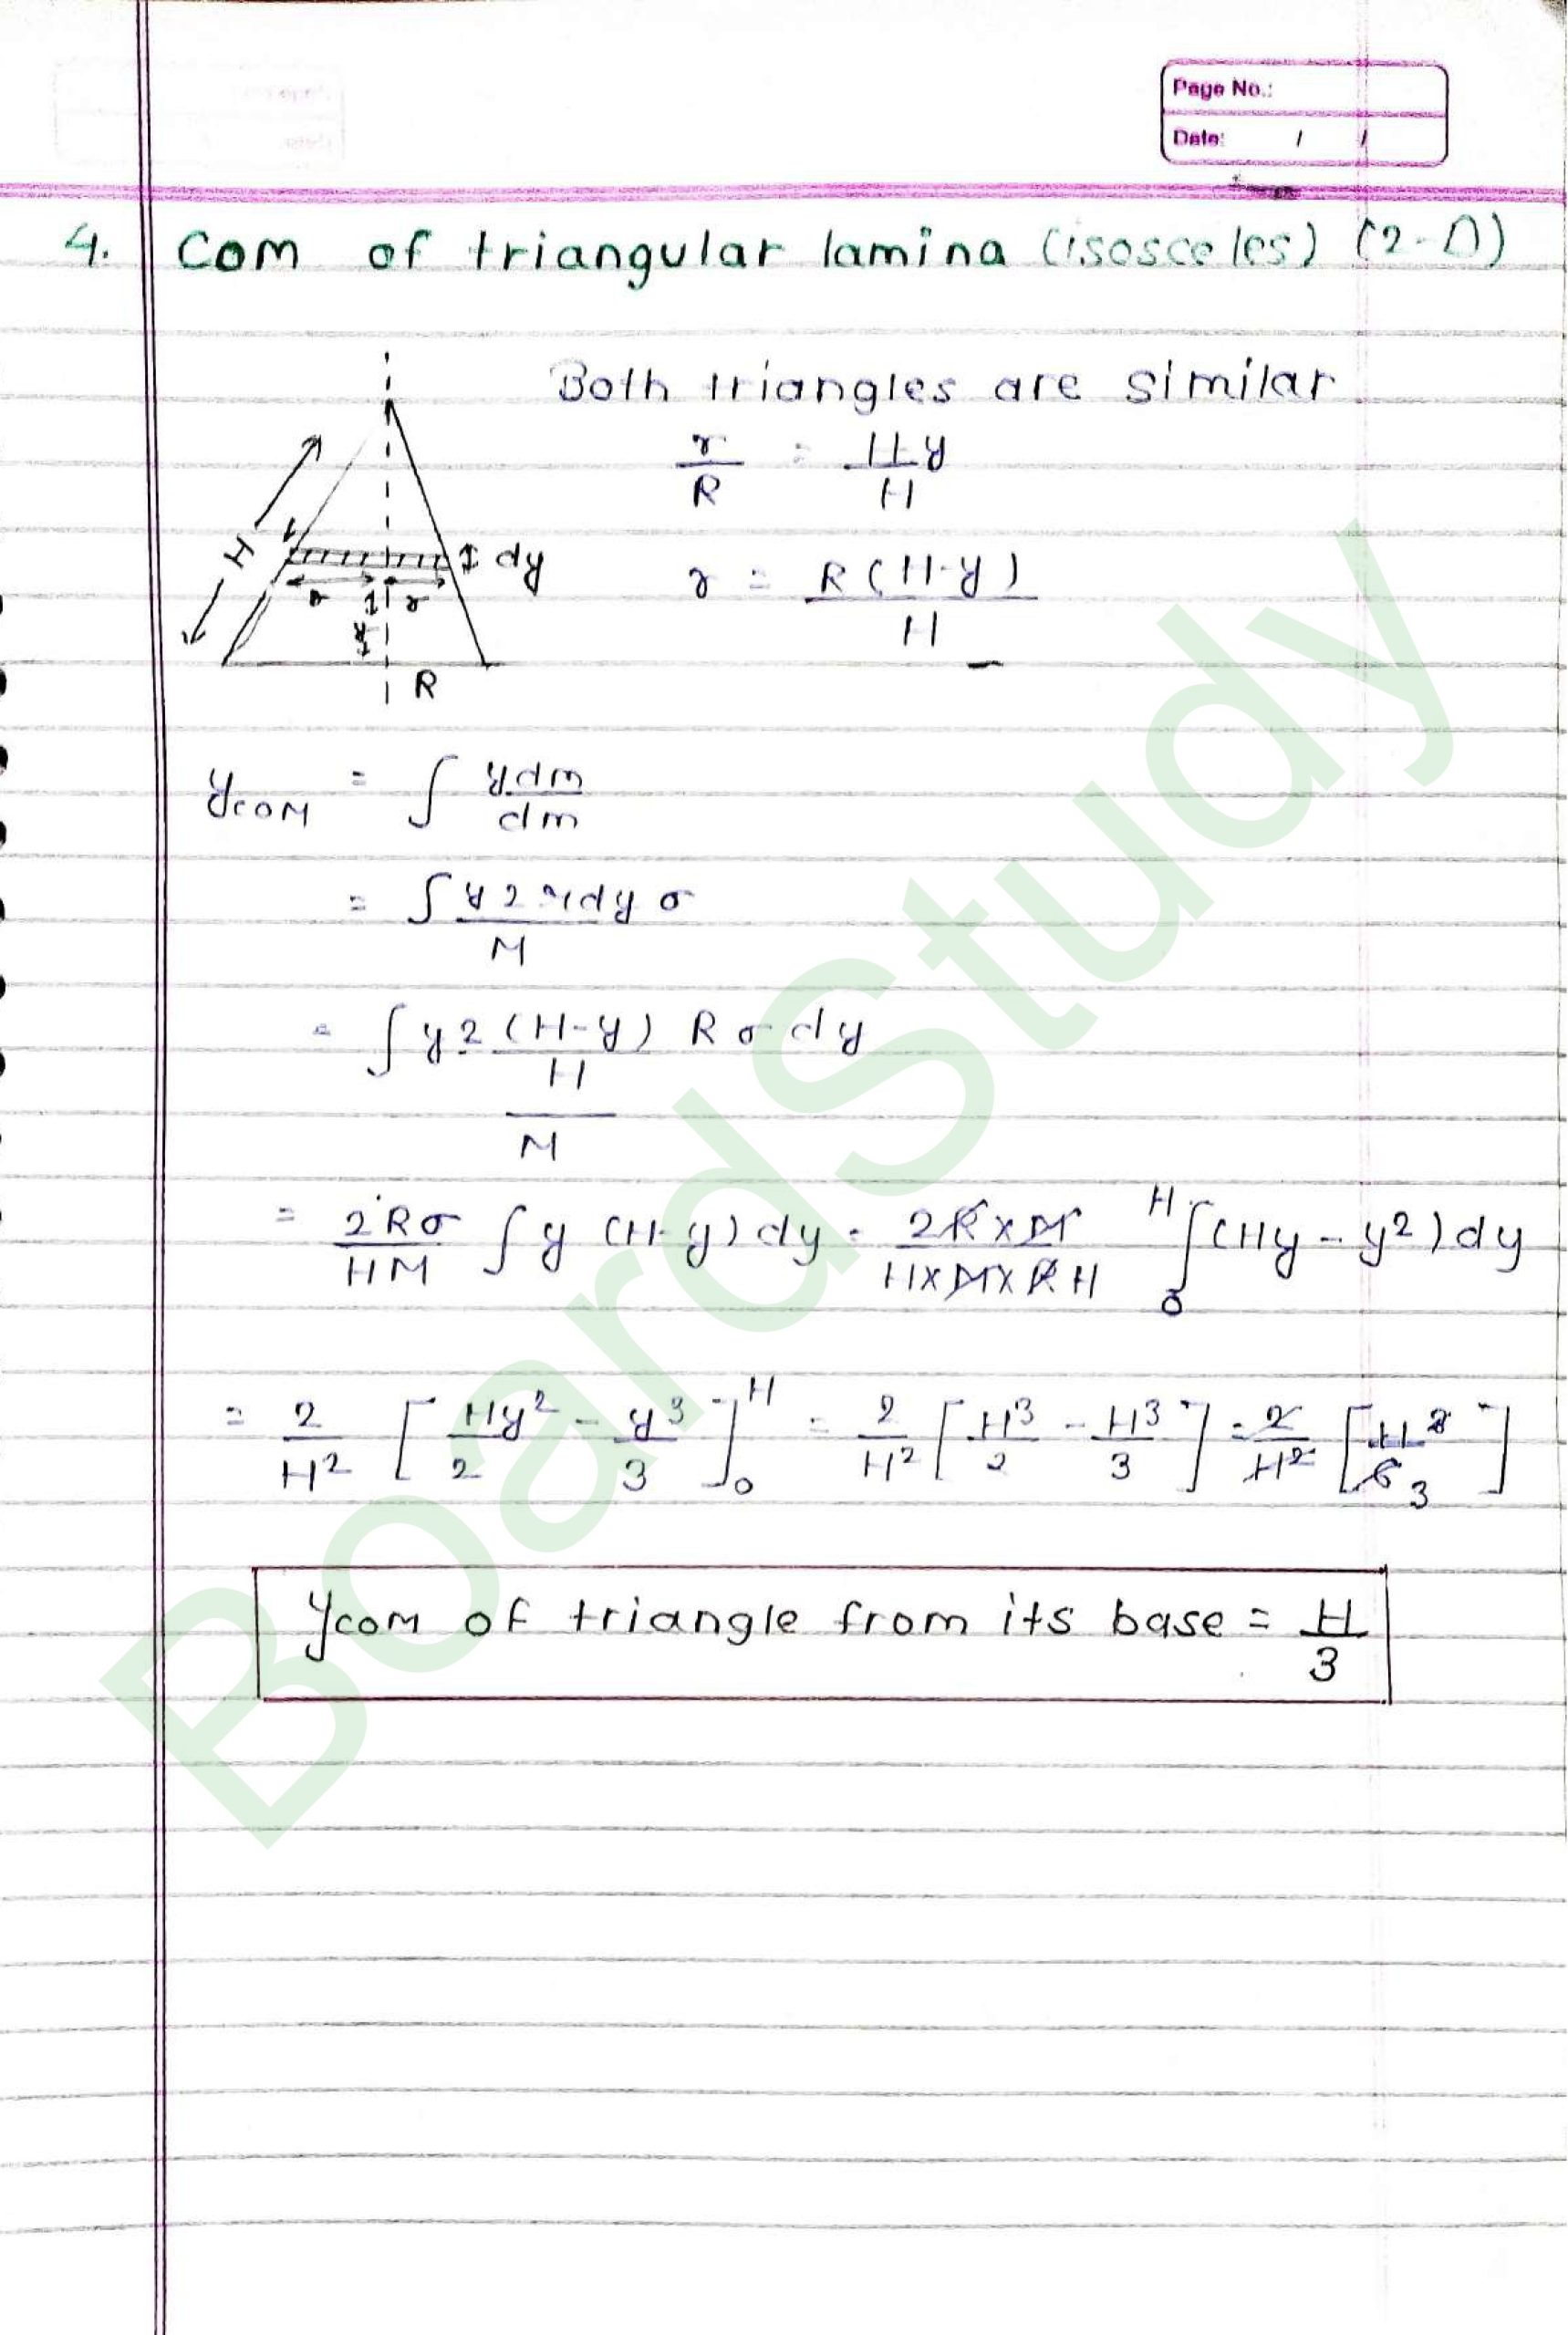 Page No.:
Date: / /
4. COM of triangular lamina (isosceles) (2-D)
Both triangles are similar
r/R = H-y/H
r = R(H-y)/H
H
dy
r r
y
R
yCOM = ∫ ydm/dm
= ∫ y 2 r dy σ/M
= ∫ y 2 (H-y)/H R σ dy/M
= 2Rσ/HM ∫ y (H-y) dy = 2R×M/H×M×RH H∫0 (Hy - y²) dy
= 2/H² [Hy²/2 - y³/3]0^H = 2/H² [H³/2 - H³/3] = 2/H² [H³/6 3]
yCOM of triangle from its base = H/3
BoardStudy